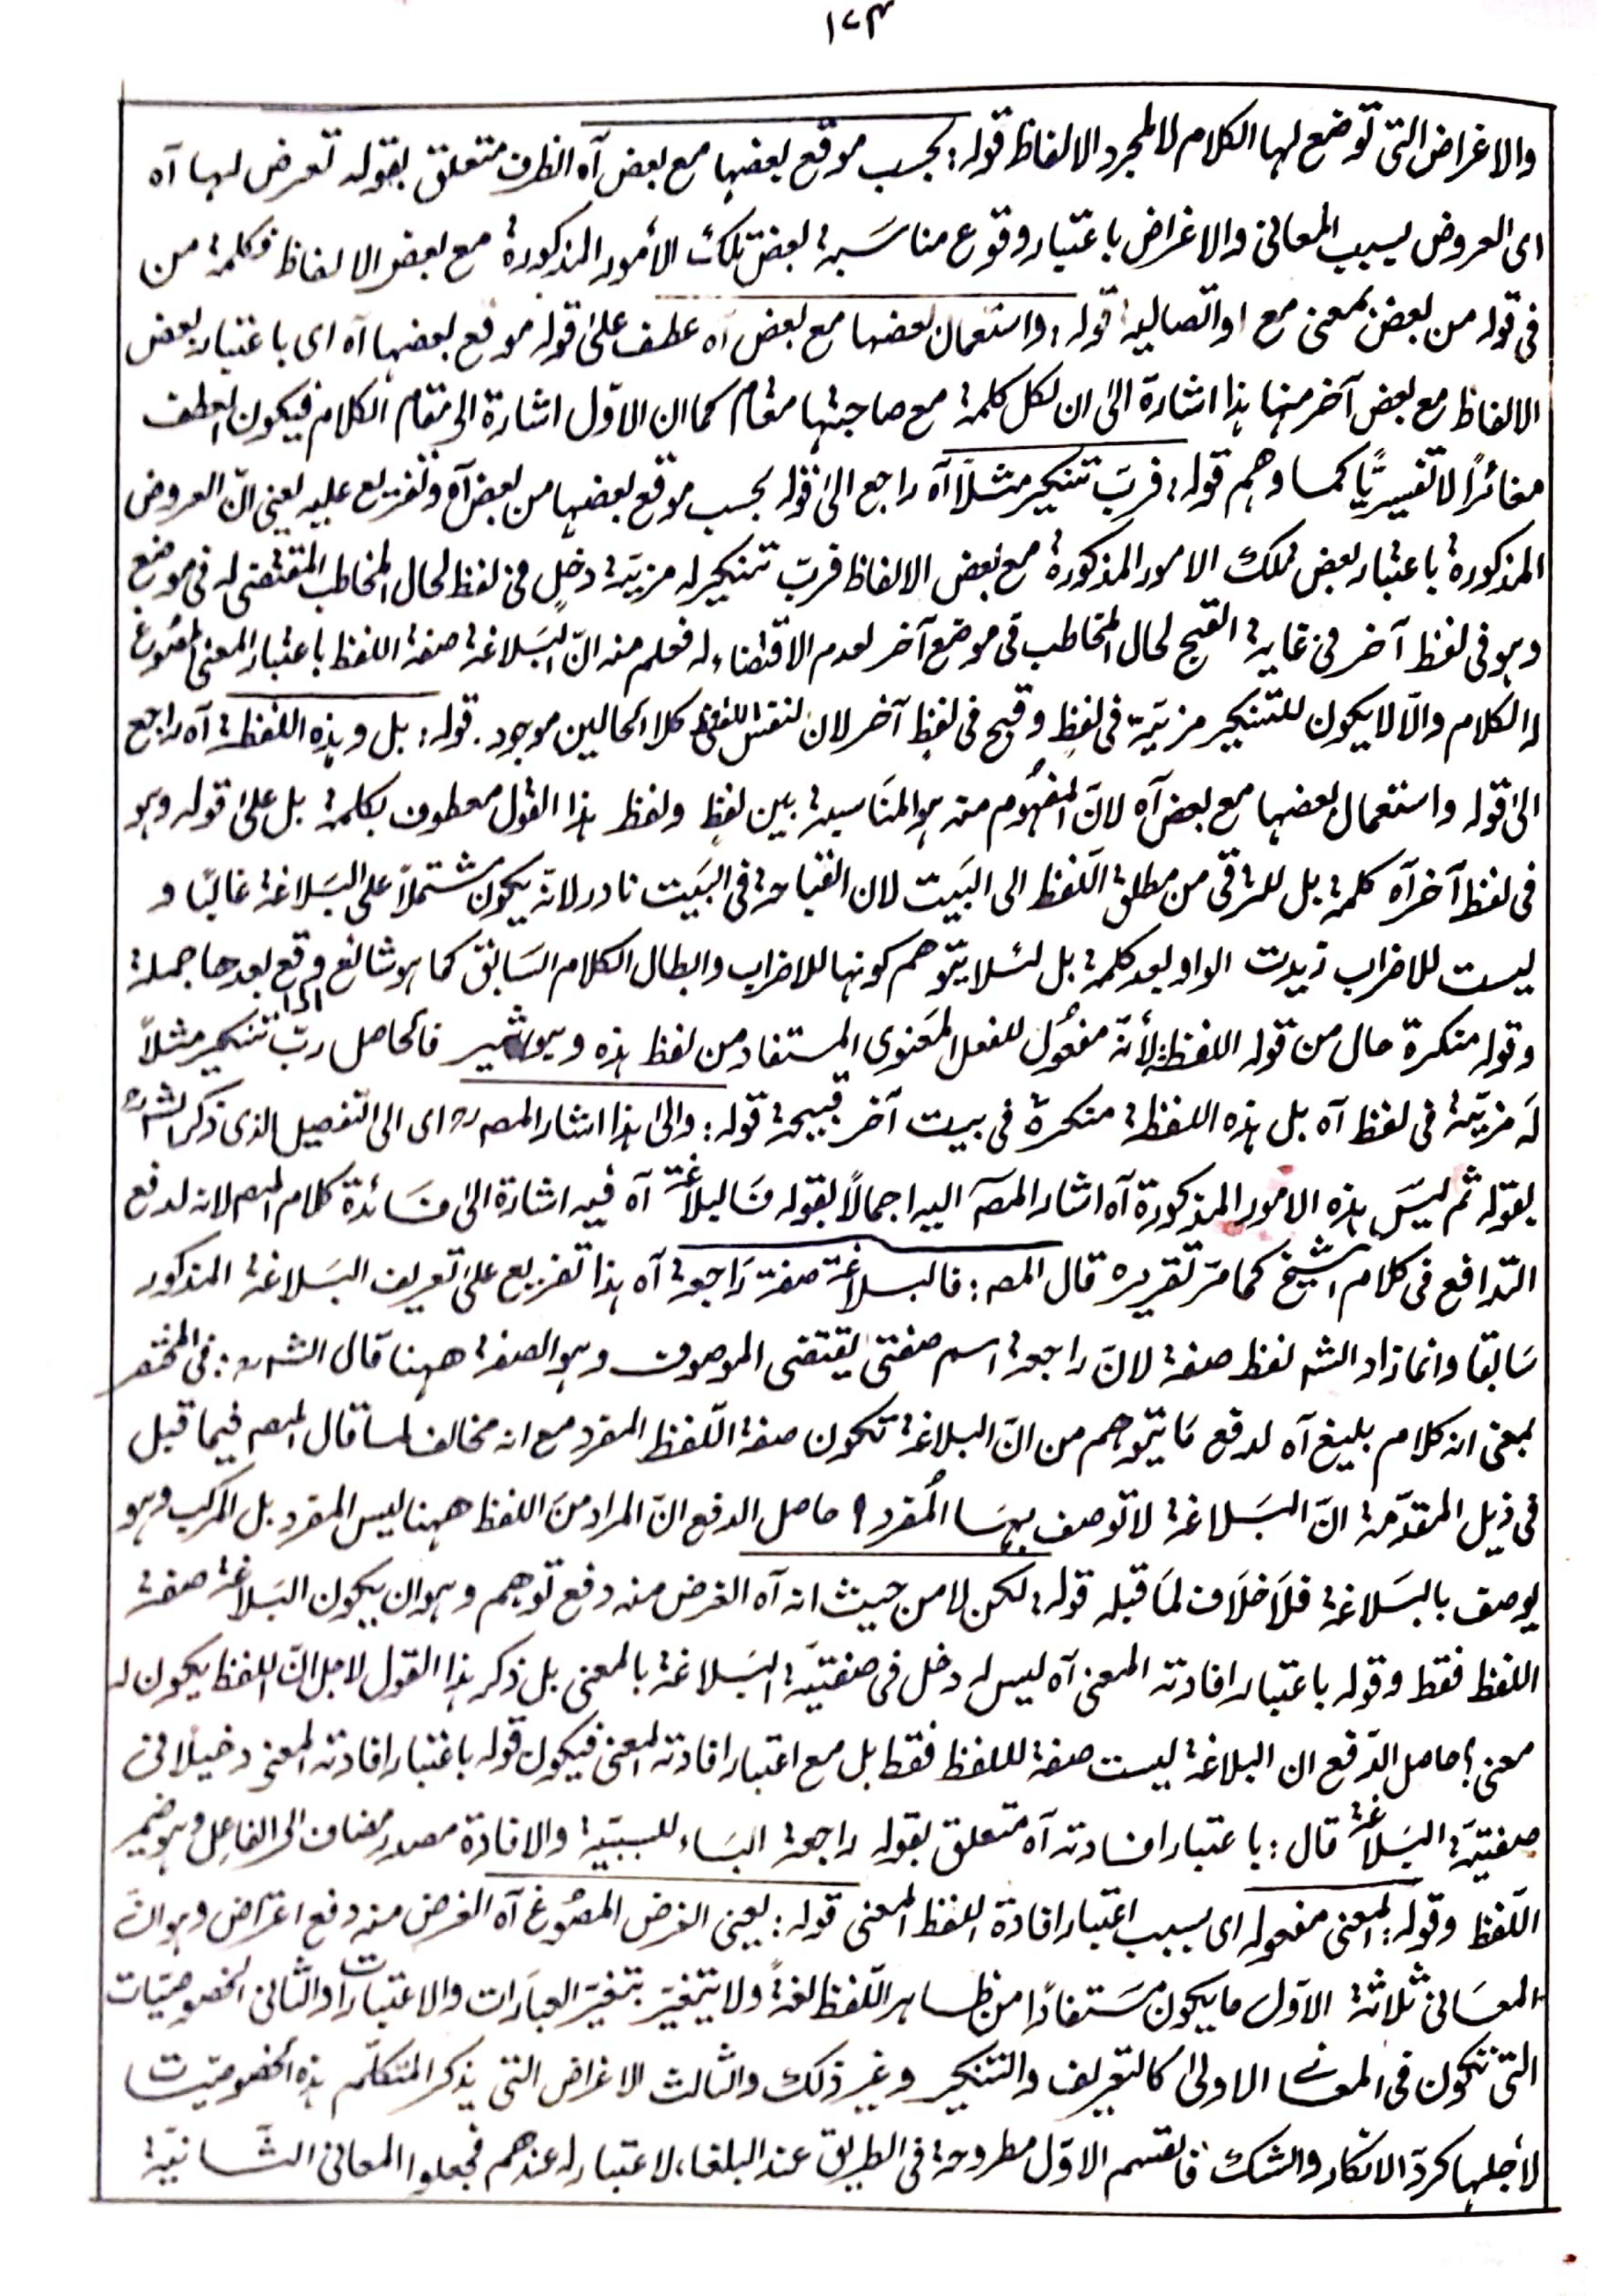 ١٧٣
والاغراض التى توضع لها الكلام لا لمجرد الالفاظ قوله: بحسب موقع بعضها مع بعض آه الظرف متعلق بقوله تعرض لها آه
اى العروض بسبب المعانى والاغراض باعتبار وقوع مناسَبة بعض تلك الأمور المذكورة مع بعض الالفاظ فكلمة من
فى قوله من بعض بمعنى مع او اتصالية قوله: واستعمال بعضها مع بعض آه عطف على قوله موقع بعضها آه اى باعتبار بعض
الالفاظ مع بعض آخر منها هذا اشارة الى ان لكل كلمة مع صاحبتها مقام كما ان الاوّل اشارة الى مقام الكلام فيكون العطف
مغائرًا لا تفسيريًّا كما وهم قوله: فربّ تنكير مثلًا آه راجع الى قوله بحسب موقع بعضها من بعض آه وتفريع عليه يعنى انّ العروض
المذكورة باعتبار بعض تملك الامور المذكورة مع بعض الالفاظ فربّ تنكير له مزيّة دخلٍ فى لفظ لحال المخاطب المقتضى له فى موضع
وهو فى لفظ آخر فى غاية القبح لحال المخاطب فى موضع آخر لعدم الاقتضاء له فعلم منه انّ البَلاغة صفة اللفظ باعتبار المعنى المصُوغ
له الكلام والّا لا يكون للتنكير مزيّة فى لفظٍ وقبح فى لفظ آخر لان لنفس اللفظ كلا الحالين موجود. قوله: بل وهذه اللفظة آه راجع
الى قوله واستعمال بعضها مع بعض آه لانّ المفهُوم منه هو المنَاسبة بين لفظٍ ولفظ هذا القول معطوف بكلمة بل على قوله وهو
فى لفظ آخر آه كلمة بل للترقى من مطلق اللّفظ الى البَيت لان القباحة فى البَيت نادر لانه يكون مشتملًا على البَلاغة غالبًا و
ليست للاضراب زيدت الواو بعد كلمة بل لئلا يتوهم كونها للاضراب وابطال الكلام السَابق كما هو شائع اذا وقع بعدها جملة
وقوله منكرة حال من قوله اللفظة لأنّه مفعُول للفعل المَعنوى المستفاد من لفظ هذه وهو اشير فالحاصل ربّ تنكير مثلًا
لَه مزيّة فى لفظ آه بل هذه اللفظة منكرة فى بيت آخر قبيحة قوله: والى هذا اشار المصه رح اى الى التفصيل الذى ذكر الشه رح
بقوله ثم ليسَ هذه الامور المذكورة آه اشار المصه اليه اجمالًا بقوله فَالبلاغة آه فيه اشارة الى فَائدة كلام المصه لانه لدفع
التدافع فى كلام الشيخ كما مرّ تقريره قال المصه: فالبلاغة صفة رَاجعة آه هذا تفريع على تعريف البَلاغة المذكور
سَابقا وانما زاد الشه لفظ صفة لانّ راجعة اسم صفتى يقتضى الموصوف وهو الصفة ههنا قال الشه رح: فى المختصر
بمعنى انه كلام بليغ آه لدفع مَا يتوهم من انّ البلاغة تكون صفة اللّفظ المفرد مع انه مخالف لما قال المصه فيما قبل
فى ذيل المقدّمة انّ البَلاغة لا توصف بهَا المُفرد؟ حاصل الدفع انّ المراد منَ اللفظ ههنا ليس المفرد بل المركب وهو
يوصف بالبَلاغة فلَا خلَاف لمَا قبله قوله: لكن لا من حيث انه آه الغرض منه دفع توهم وهو ان يكون البَلاغة صفة
اللفظ فقط وقوله باعتبار افادته المعنى آه ليس له دخل فى صفتيَة البَلاغة بالمعنى بل ذكر هذا القول لاجل انّ اللفظ يكون له
معنى؟ حاصل الدّفع ان البلاغة ليست صفة للفظ فقط بل مع اعتبار افادته المعنى فيكون قوله باعتبار افادته المعنى دخيلًا فى
صفتيَة البَلاغة قال: باعتبار افادته آه متعلق بقوله راجعة البَاء للسببيّة والافادة مصدر مضاف الى الفاعل وهو ضمير
اللّفظ وقوله: المعنى مفعوله اى بسبب اعتبار افادة اللفظ المعنى قوله: يعنى الغرض المصُوغ آه الغرض منه دفع اعتراض وهو انّ
المعَانى ثلاثة الاوّل ما يكون مسَتفادًا من ظاهر اللّفظ لغةً ولا يتغيّر بتغيّر العبَارات والاعتبارات والثانى الخصوصيّات
التى تكون فى المعَانى الاولى كالتعريف والتنكير وغير ذلك والثالث الاغراض التى يذكر المتكلّم هذه الخصوصيّات
لأجلها كردّ الانكار والشك فالقسم الاوّل مطروحة فى الطريق عند البلغاء لا عتبار له عندهم فجعلوا المعانى الثَانيّة